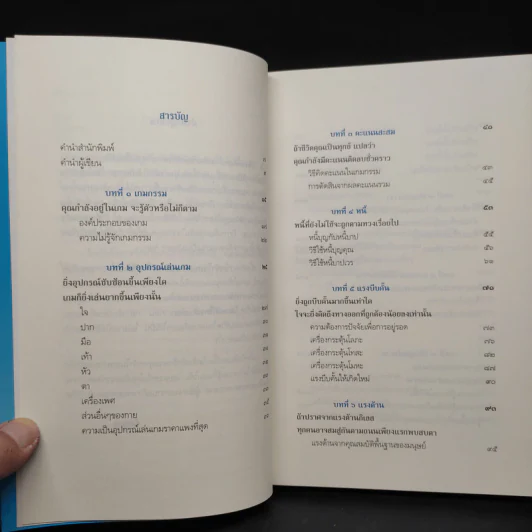 สารบัญ
คำนำสำนักพิมพ์
คำนำผู้เขียน
บทที่ ๑ เกมกรรม
คุณกำลังอยู่ในเกม จะรู้ตัวหรือไม่ก็ตาม
องค์ประกอบของเกม
ความไม่รู้จักเกมกรรม
บทที่ ๒ อุปกรณ์เล่นเกม
ยิ่งอุปกรณ์ซับซ้อนขึ้นเพียงใด
เกมก็ยิ่งเล่นยากขึ้นเพียงนั้น
ใจ
ปาก
มือ
เท้า
หัว
ตา
เครื่องเพศ
ส่วนอื่นๆของกาย
ความเป็นอุปกรณ์เล่นเกมราคาแพงที่สุด
บทที่ ๓ คะแนนสะสม
ถ้าชีวิตคุณเป็นทุกข์ แปลว่า
คุณกำลังมีคะแนนติดลบชั่วคราว
วิธีคิดคะแนนในเกมกรรม
การตัดสินจากยอดคะแนนรวม ๔๕
บทที่ ๔ หนี้ ๕๓
หนี้ที่ยังไม่ใช้จะถูกตามทวงเรื่อยไป
หนี้บุญกับหนี้บาป ๕๕
วิธีใช้หนี้บุญคุณ
วิธีใช้หนี้บาปเวร
บทที่ ๕ แรงบีบคั้น ๗๑
ยิ่งถูกบีบคั้นมากขึ้นเท่าใด
ใจจะยิ่งคิดถึงทางออกที่ถูกต้องน้อยลงเท่านั้น
ความต้องการปัจจัยเพื่อการอยู่รอด ๗๓
เครื่องกระตุ้นโลภะ ๗๖
เครื่องกระตุ้นโทสะ ๘๒
เครื่องกระตุ้นโมหะ ๘๗
แรงบีบคั้นให้เกิดใหม่ ๙๐
บทที่ ๖ แรงต้าน ๙๓
ถ้าปราศจากแรงต้านกิเลส
ทุกคนอาจสมสู่กันตามถนนเพียงแรกพบสบตา
แรงต้านจากคุณสมบัติพื้นฐานของมนุษย์ ๙๕